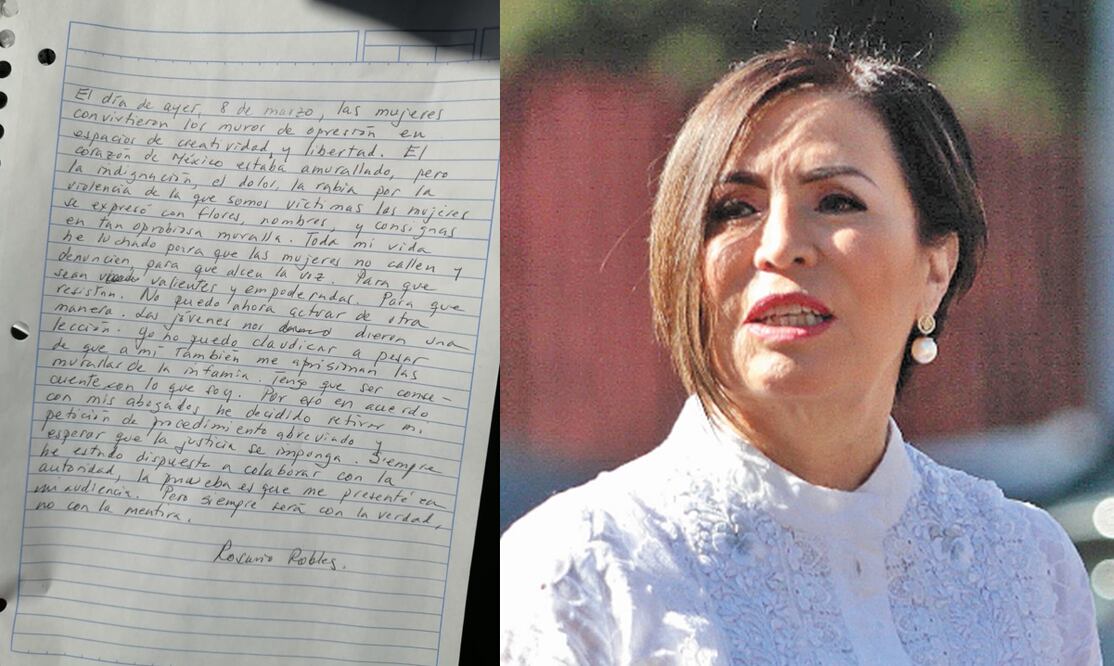 El día de ayer, 8 de marzo, las mujeres
convirtieron los muros de opresión en
espacios de creatividad y libertad. El
corazón de México estaba amurallado, pero
la indignación, el dolor, la rabia por la
violencia de la que somos víctimas las mujeres
se expresó con flores, nombres, y consignas
en tan oprobiosa muralla. Toda mi vida
he luchado porra que las mujeres no callen y
denuncien para que alcen la voz. Para que
sean valientes y empoderadas. Para que
resistan. No puedo ahora actuar de otra
manera. Las jóvenes nos dieron una
lección. Yo no puedo claudicar a pesar
de que a mí también me aprisionan las
murallas de la infamia. Tengo que ser conse-
cuente con lo que soy. Por eso en acuerdo
con mis abogados he decidido retirar mi
petición de procedimiento abreviado y
esperar que la justicia se imponga. Siempre
he estado dispuesta a colaborar con la
autoridad, la prueba es que me presenté en
mi audiencia. Pero siempre será con la verdad,
no con la mentira.
Rosario Robles.